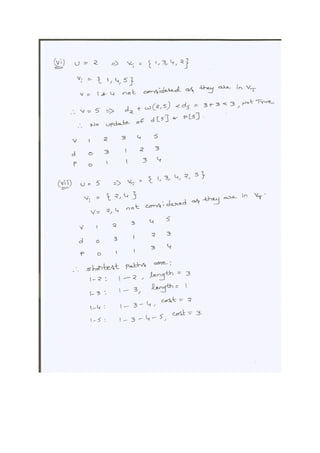 (vi) u = 2 ⇒ V_T = { 1, 3, 4, 2 }
V_i = { 1, 4, 5 }
v = 1 & 4 not considered as they are in V_T
∴ v = 5 ⇒ d_2 + w(2,5) < d_5 = 3 + 3 < 3, Not True
∴ No update of d[5] & P[5].
V 1 2 3 4 5
d 0 3 1 2 3
P 0 1 1 3 4
(vii) u = 5 ⇒ V_T = { 1, 3, 4, 2, 5 }
V_i = { 2, 4 }
V = 2, 4 not considered as they are in V_T.
V 1 2 3 4 5
d 0 3 1 2 3
P 0 1 1 3 4
∴ shortest paths are:
1-2: 1 – 2, length = 3
1-3: 1 – 3, length = 1
1-4: 1 – 3 – 4, cost = 2
1-5: 1 – 3 – 4 – 5, cost = 3